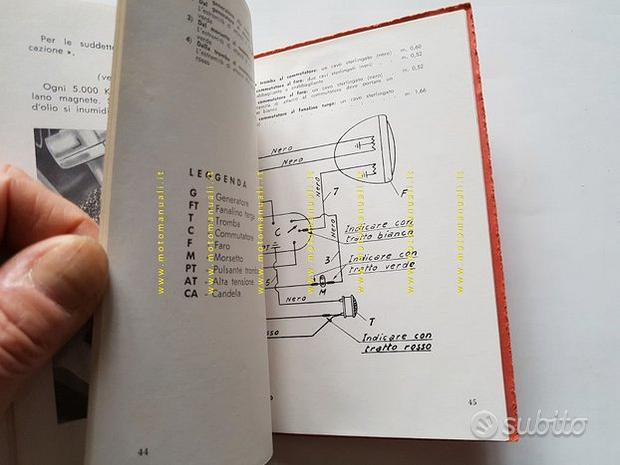 Per le suddett
cazione ».
(ve
Ogni 5.000 K
lano magnete. S
d'olio si inumidi
Dal generatore
verde
3) Dal
L'estremità
verde
4) Dalla tromba
L'estremità di
rosso
LEGGENDA
G - Generatore
FT - Fanalino targa
T - Tromba
C - Commutatore
F - Faro
M - Morsetto
PT - Pulsante tromb
AT - Alta tensione
CA - Candela
44
tromba al commutatore: un cavo sterlingato (nero) m. 0,60
commutatore al faro: due cavi sterlingati (nero) m. 0,52
commutatore al faro: un cavo sterlingato (nero) m. 0,52
commutatore al fanalino targa: un cavo sterlingato m. 1,66
Nero
Nero
Nero
7
F
C
Indicare con
tratto bianco
3
Indicare con
tratto verde
5
M
Nero
T
osso
Indicare con
tratto rosso
45
www.motomanuali.it
www.motomanuali.it
www.motomanuali.it
www.motomanuali.it
www.motomanuali.it
www.motomanuali.it
subito